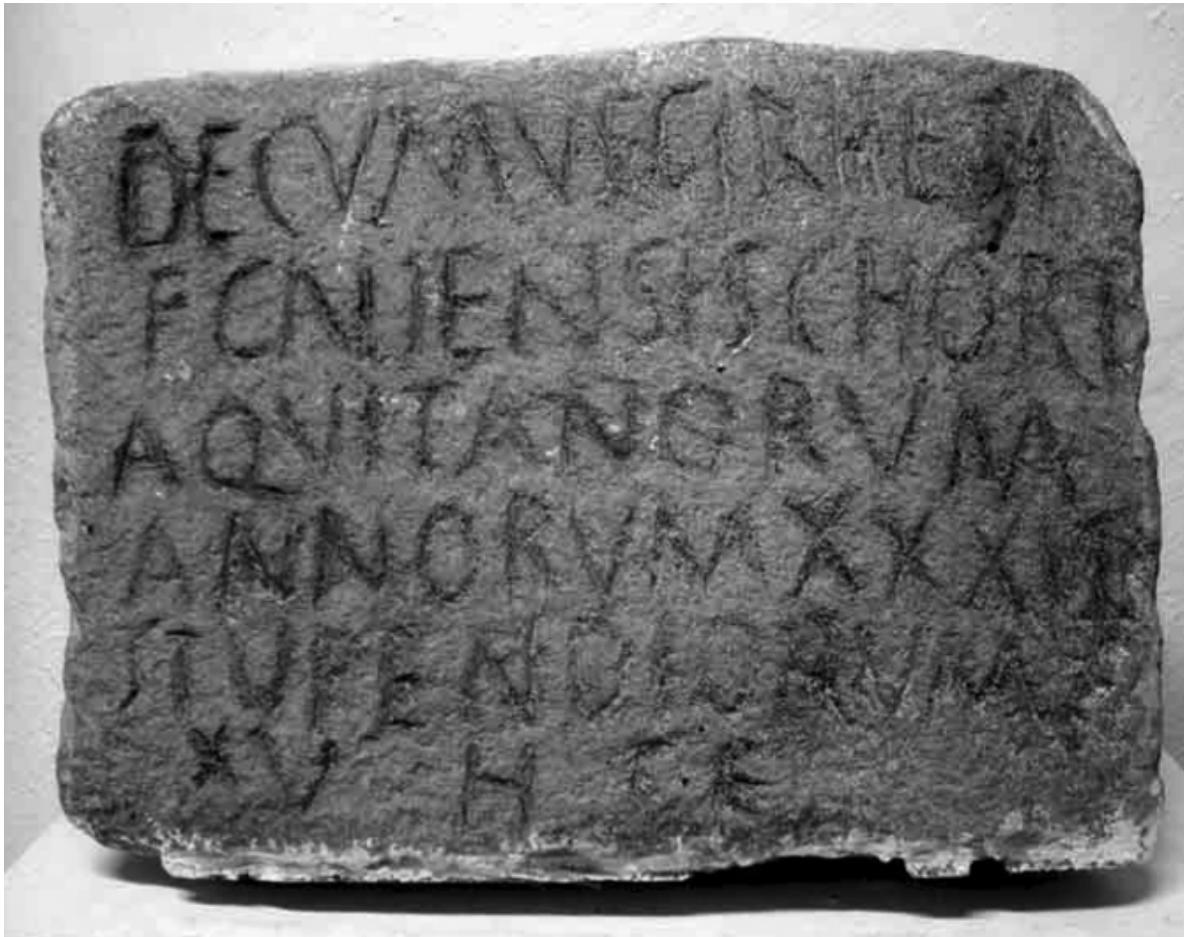 DECVM
F CNIENSIS CHORT
AQVITANORVM
ANNORVM XXX
STVPENDIORVM
XV H